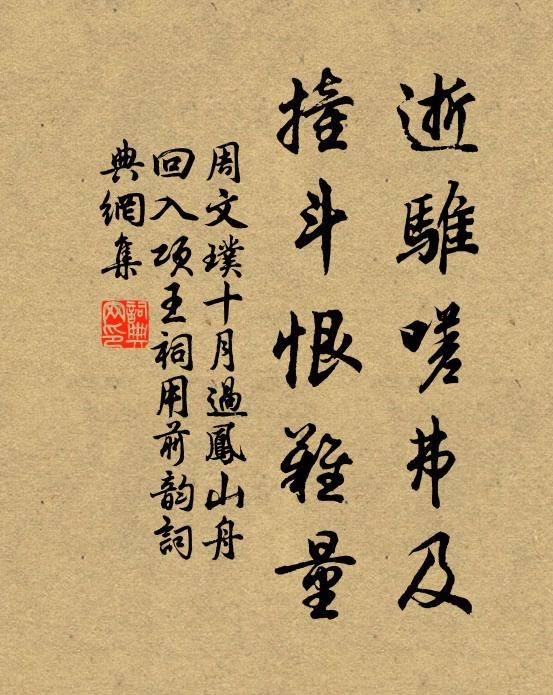 逝騅嗟弗及
撞斗恨難量
周文璞十月過鳳山舟
回入项王祠用前韵詞
典網集
詞典
网印